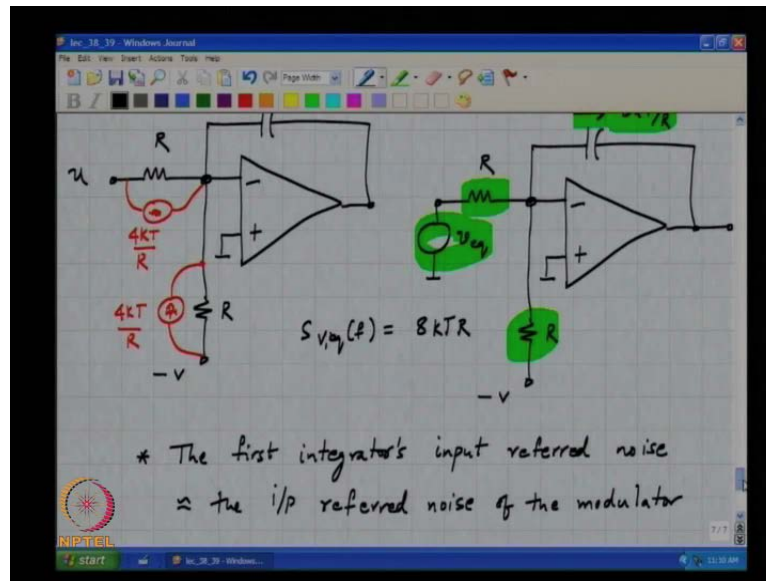 lec_38_39 - Windows Journal
File Edit View Insert Actions Tools Help
Page Width
B I
R
u
4KT
R
-
+
4KT
R
R
-v
R
v eq
-
+
R
-v
S v,eq (f) = 8kTR
* The first integrator's input referred noise
≈ the i/p referred noise of the modulator
7/7
NPTEL
start
lec_38_39 - Windows...
11:10 AM